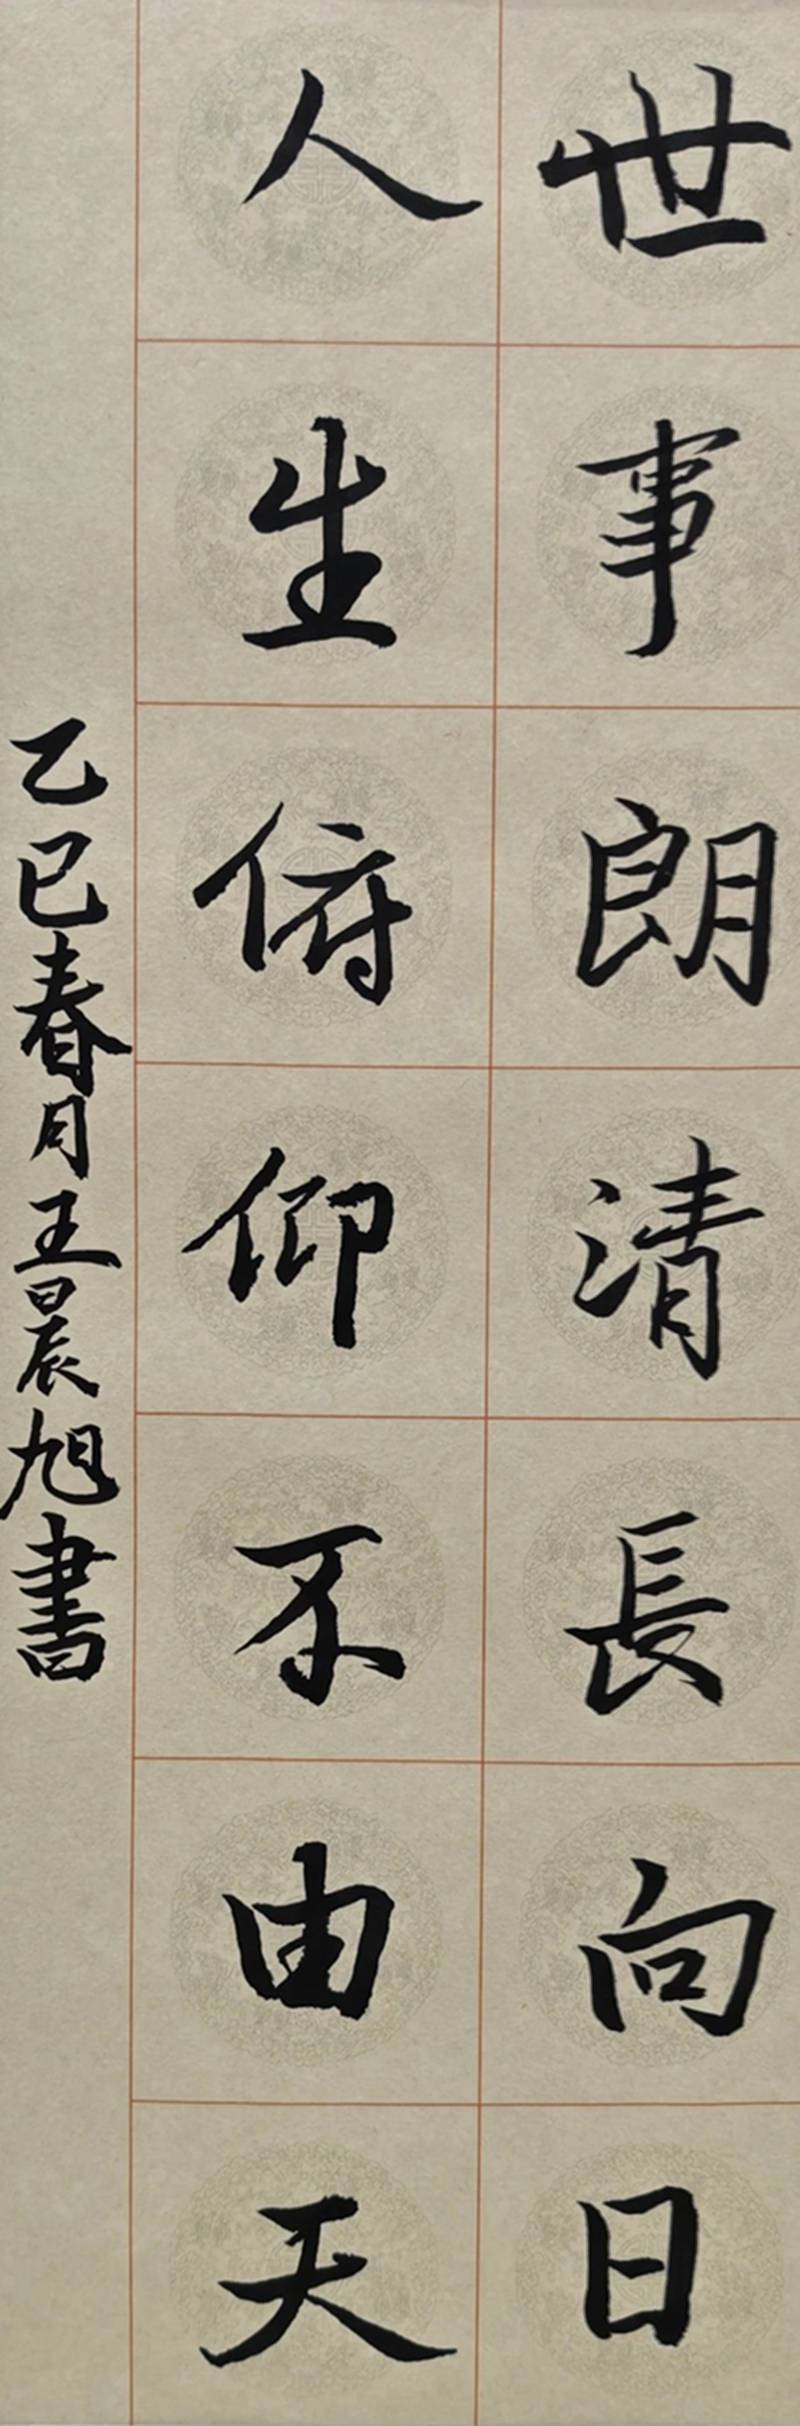 世事朗清長向日
人生俯仰不由天
乙巳春月王晨旭書